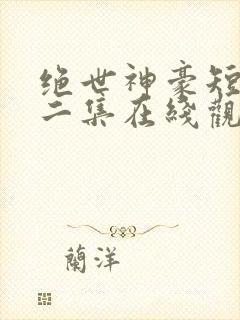 绝世神豪短
二集在綫觀
蘭洋